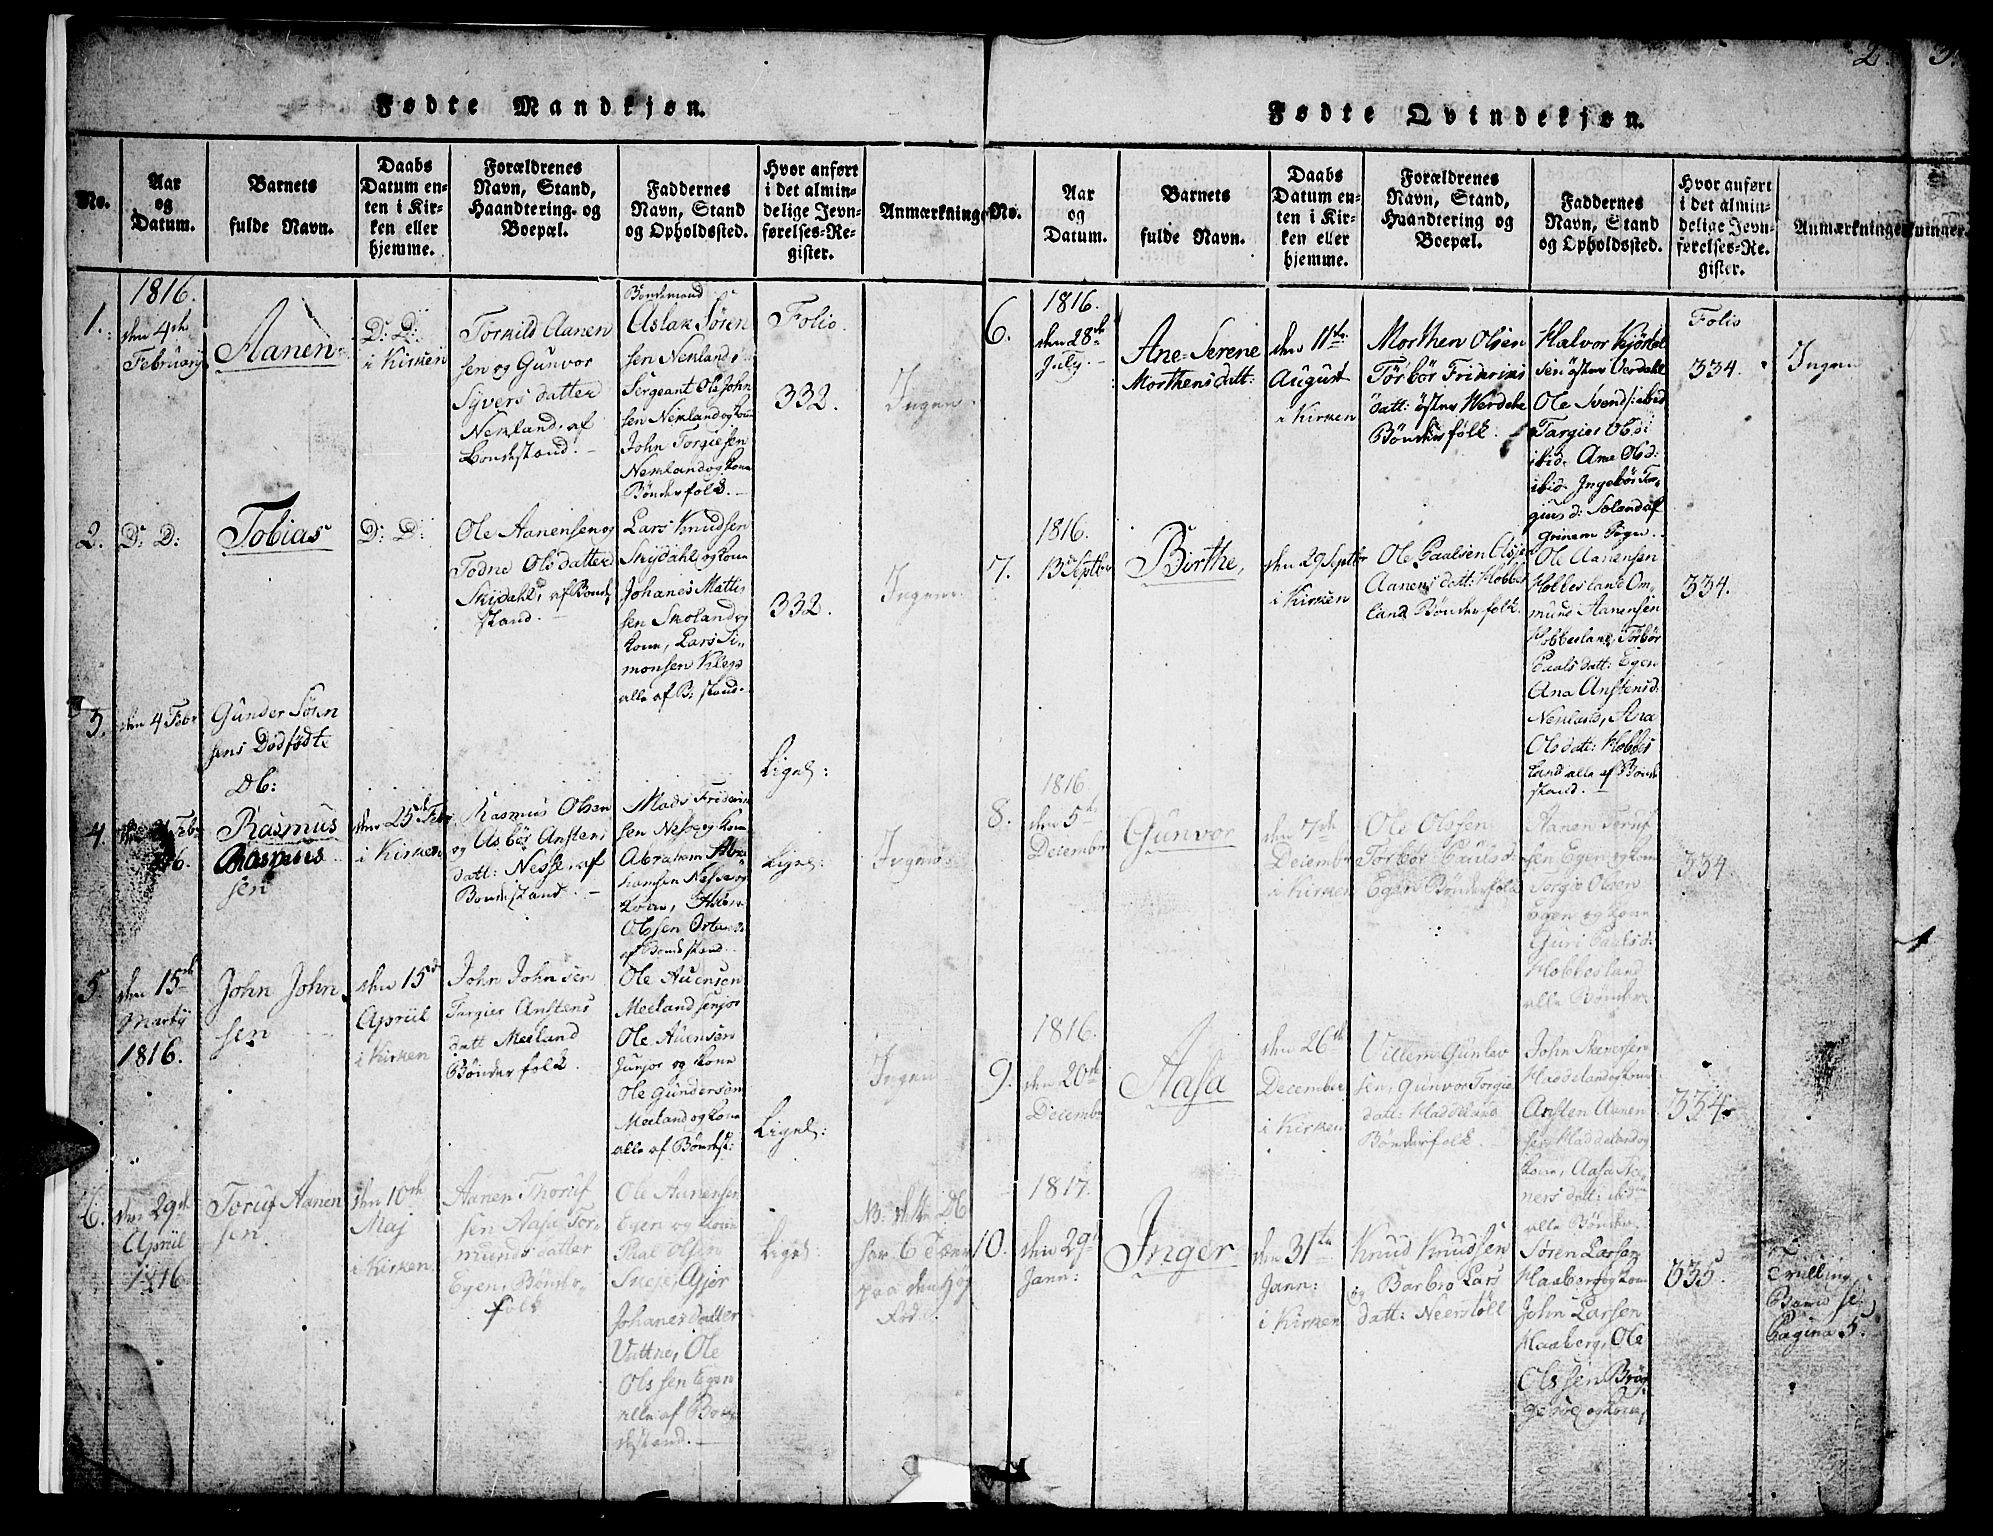 2. 3.
Fødte Mandkjøn.
No.
Aar
og
Datum.
Barnets
fulde Navn.
Daabs
Datum en-
ten i Kir-
ken eller
hjemme.
Forældrenes
Navn, Stand,
Haandtering og
Boepæl.
Faddernes
Navn, Stand
og Opholdssted.
Hvor anført
i det almin-
delige Jevn-
førelses-Re-
gister.
Anmærkninger
1.
1816.
den 4de
February
Aanen
D: D:
i Kirken
Torkild Aanen
sen og Gunvor
Syvers datter
Nemland, af
Bondestand.
Bondemand
Aslak Sören
sen Nemland
Sergeant Ole John
sen Nemland og kone
John Torgiesen
Nemland og kone
Bönderfolk.
Folio
332.
Ingen
2.
D: D:
Tobias
D: D:
Ole Aanensen og
Todne Olsdatter
Skjdahl, af Bonde
stand.
Lars Knudsen
Skjdahl og kone
Johanes Mattis
sen Skoland og
kone, Lars Si-
monsen Klep
alle af B: stand.
332.
Ingen
3.
den 4 Febr
Gunder Sörn
sens Dödfödte
Db:
Lignes:
4.
Feb
Rasmus
Rasmus
sen
den 25de Febr
i Kirken
Rasmus Olsen
og Asbör Anstens
datt: Nesse, af
Bondestand.
Mads Friderich
sen Nesse og kone
Abraham Abra
hamsen Nesse og
kone,
Olssen
af Bondestand.
Lignes:
Ingen
5.
den 15de
Marty
1816.
John John
sen
den 15de
Apriil
i Kirken
John Johnsen
Targier Anstens
datt Meeland
Bönderfolk.
Ole Auensen
Meeland senjor
Ole Auensen
junjor og kone
Ole Gundersen
Meeland og kone
alle af Bondest:
Lignes:
Ingen
6.
den 29de
Apriil
1816
Toruf Aanen
sen
den 10de
Maj
i Kirken
Aanen Thoruf
sen Aasa Tor-
munds datter
Egen, Bönder-
folk
Ole Aanensen
Egen og kone
Paal Olsen
Ajör
Johanes datter
Vattne, Ole
Olssen Egen
alle af Bon
destand.
Lignes:
NB: dette Db
har 6 Tæer
paa
Fod
Fødte Qvindekjøn.
No.
Aar
og
Datum.
Barnets
fulde Navn.
Daabs
Datum en-
ten i Kir-
ken eller
hjemme.
Forældrenes
Navn, Stand,
Haandtering og
Boepæl.
Faddernes
Navn, Stand
og Opholdssted.
Hvor anført
i det almin-
delige Jevn-
førelses-Re-
gister.
Anmærkninger
6.
1816.
den 28de
July
Ane Serene
Morthens datt:
den 11te
August
i Kirken
Morthen Olsen
Törbör Fridrichs
datt: östre Werdahl
Bönderfolk.
Halvor Kjöstel
sen östre Verdahl
Ole Svends: ibid
Targier Ols d:
ibid. Ane Ols d:
ibid. Ingebör Tor-
gius d: Soland af
Grinem Sogn.
Folio
334.
Ingen
7.
1816.
13 Septbr
Birthe,
den 29 Septbr
i Kirken
Ole Paalsen
Aanens datt: Hobbes
land Bönderfolk.
Ole Aanensen
Hobbesland Om
mund Aanensen
Hobbesland, Törbör
Paals datt: Egen
Ana Anstens d:
Nemland, Ana
Ols datt: Hobbes
land alle af Bonde
stand.
334.
8.
1816.
den 5te
December
Gunvor
den 7de
Decembr
i Kirken
Ole Olssen
Törbör Pauls d:
Egen Bönderfolk
Aanen Toruf
sen Egen og kone
Torgie Olsen
Egen og kone
Guri Paals d:
Hobbesland
alle Bönder.
334
9.
1816.
den 20de
Decembr
Aasa
den 26de
December
i Kirken
Villem Gunlev
sen, Gunvor Torgie
datt: Haddeland
Bönderfolk.
John Stenersen
Haddeland og kone
Ansten Aanen
sen Haddeland og
kone, Aasa
ners datt: ibidem
alle Bönder.
334.
10.
1817.
den 29de
Jann:
Inger
den 31te
Jann:
i Kirken
Knud Knudsen
og Barbro Lars
datt: Neerstöll
Sören Larsen
Haaberg og kone
John Larsen
Haaberg, Ole
Olssen
og kone,
335.
Trilling
Barn se
Pagina 5.